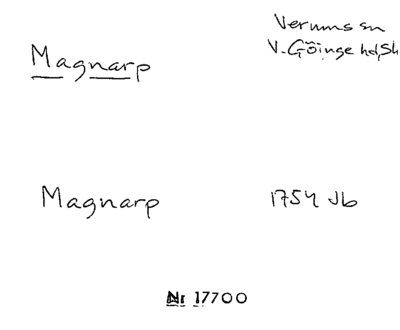 Magnarp
Verums sn
V. Göinge hd, Sk
Magnarp
1754 Jb
Nr 17700